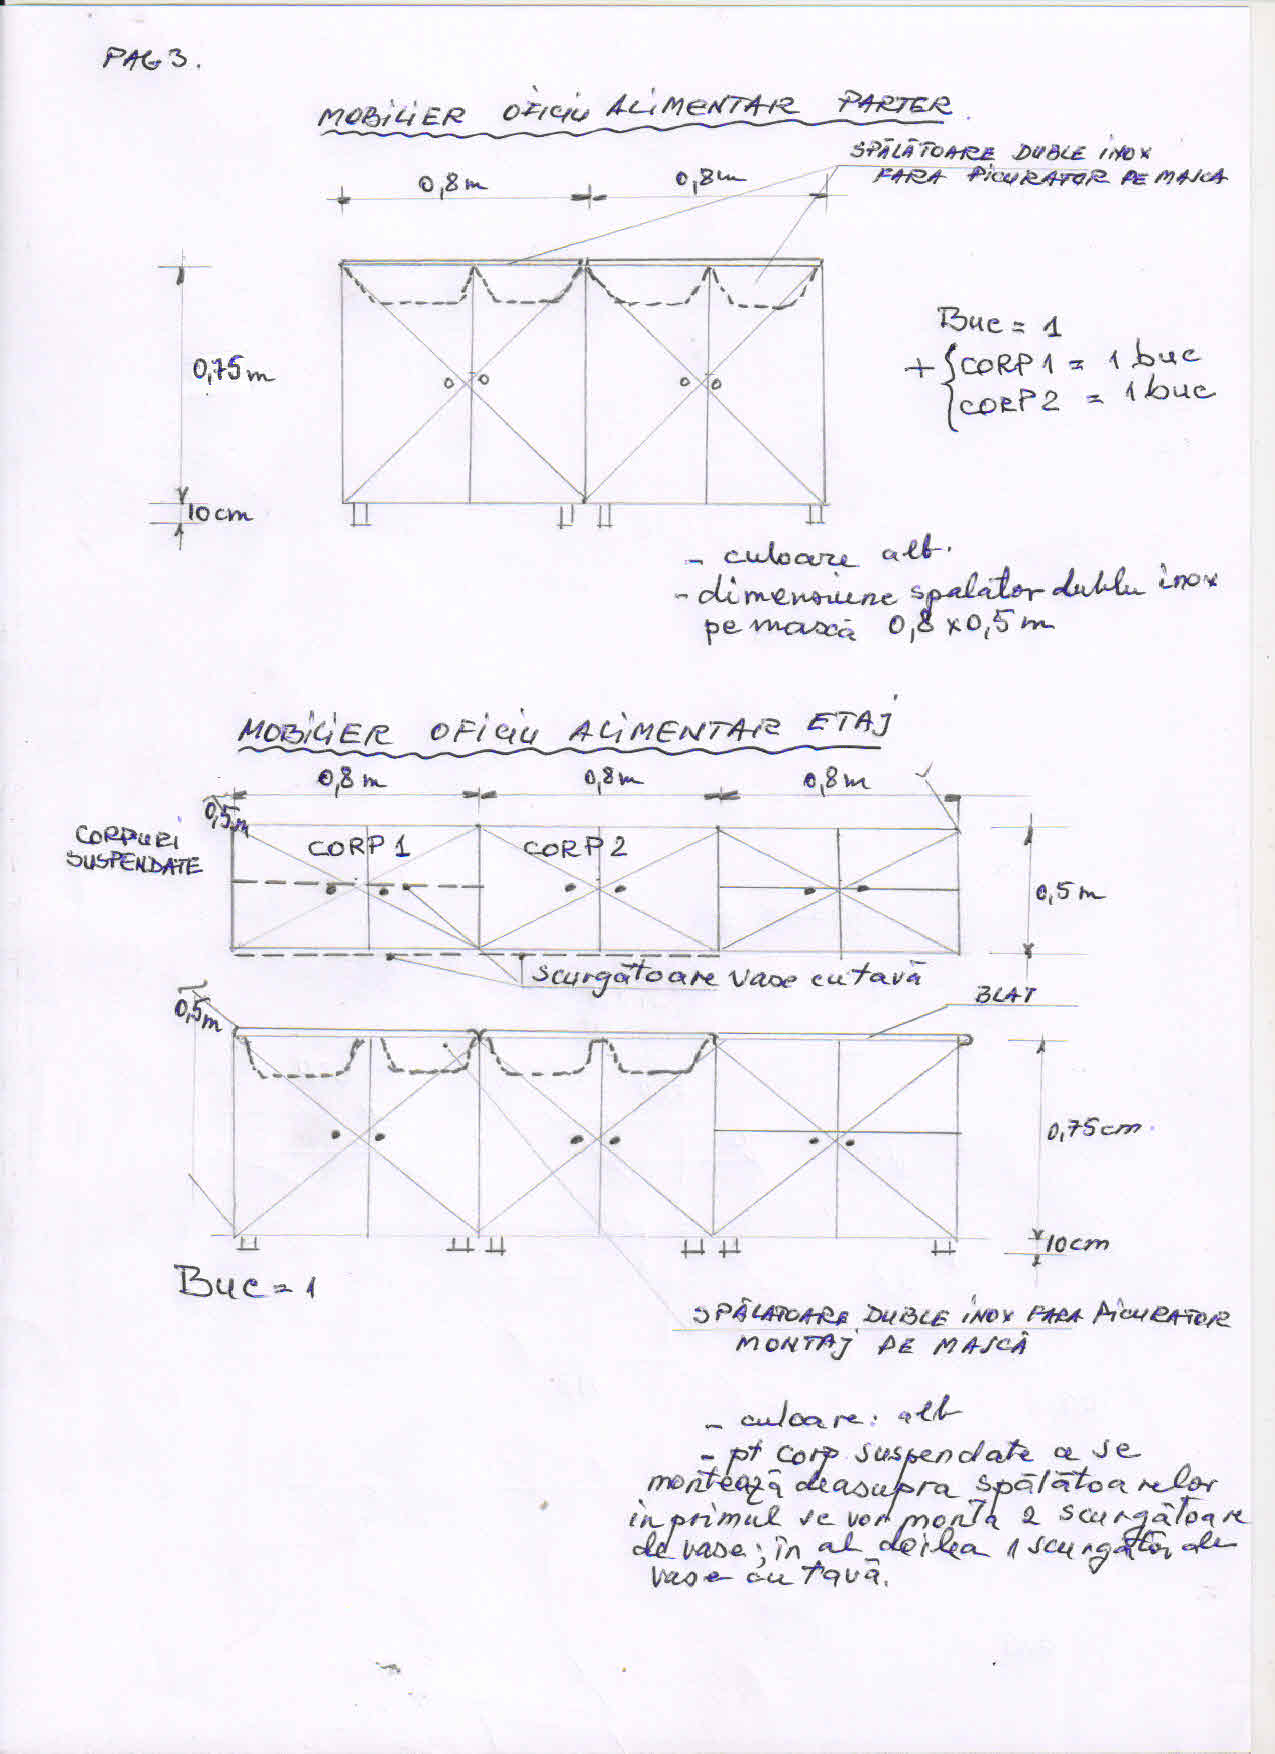 PAG 3.
MOBILIER OFICIU ALIMENTAR PARTER
SPĂLĂTOARE DUBLE INOX
FARA PICURATOR PE MASCA
0,8 m
0,8 m
0,75 m
10 cm
Buc = 1
+ { CORP 1 = 1 buc
CORP 2 = 1 buc
- culoare alb.
- dimensiune spalator dublu inox
pe mască 0,8 x 0,5 m
MOBILIER OFICIU ALIMENTAR ETAJ
0,8 m
0,8 m
0,8 m
0,5 m
CORPURI
SUSPENDATE
CORP 1
CORP 2
0,5 m
scurgătoare vase cu tavă
BLAT
0,5 m
0,75 cm
10 cm
Buc = 1
SPĂLATOARE DUBLE INOX FARA PICURATOR
MONTAJ PE MASCĂ
- culoare: alb
- pt corp suspendate a se
montează deasupra spălătoarelor
in primul se vor monta 2 scurgătoare
de vase; în al doilea 1 scurgător de
vase cu tavă.